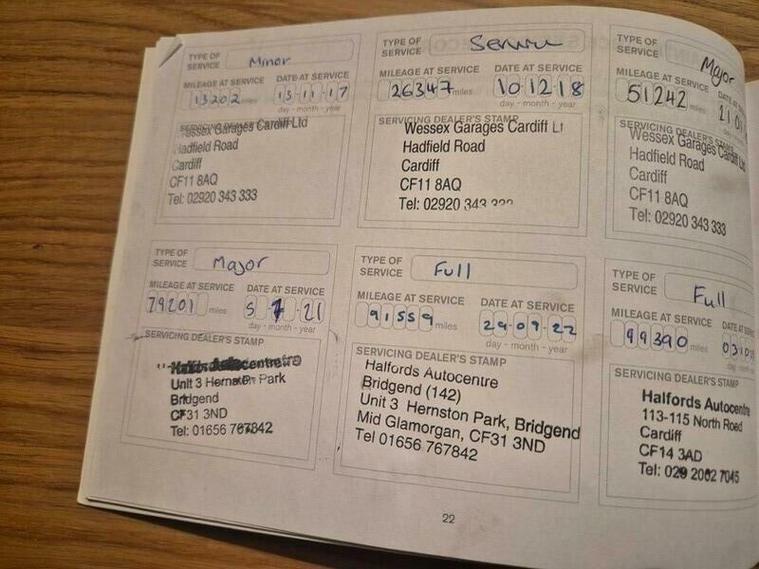 TYPE OF SERVICE Minor
MILEAGE AT SERVICE DATE AT SERVICE
13202 miles 13-11-17
day - month - year
SERVICING DEALER'S STAMP
Wessex Garages Cardiff Ltd
Hadfield Road
Cardiff
CF11 8AQ
Tel: 02920 343 333
TYPE OF SERVICE Service
MILEAGE AT SERVICE DATE AT SERVICE
26347 miles 10 12 18
day - month - year
SERVICING DEALER'S STAMP
Wessex Garages Cardiff Lt
Hadfield Road
Cardiff
CF11 8AQ
Tel: 02920 343
TYPE OF SERVICE Major
MILEAGE AT SERVICE DATE
51242 miles
SERVICING DEALER'S
Wessex Garages Cardiff Ltd
Hadfield Road
Cardiff
CF11 8AQ
Tel: 02920 343 333
TYPE OF SERVICE Major
MILEAGE AT SERVICE DATE AT SERVICE
79201 miles 21
day - month - year
SERVICING DEALER'S STAMP
Unit 3 Park
Bridgend
CF31 3ND
Tel: 01656 767842
TYPE OF SERVICE Full
MILEAGE AT SERVICE DATE AT SERVICE
91559 miles 29-09-22
day - month - year
SERVICING DEALER'S STAMP
Halfords Autocentre
Bridgend (142)
Unit 3 Hernston Park, Bridgend
Mid Glamorgan, CF31 3ND
Tel 01656 767842
TYPE OF SERVICE Full
MILEAGE AT SERVICE
99390 miles
SERVICING DEALER'S STAMP
Halfords Autocentre
113-115 North Road
Cardiff
CF14 3AD
Tel: 029 2062 7045
22